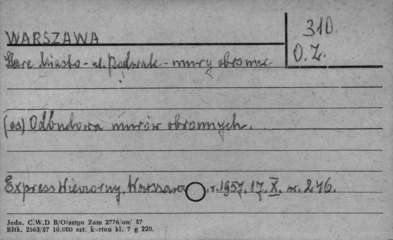 WARSZAWA
310.
O.Z.
Stare Miasto - ul. Podwale - mury obronne
(os) Odbudowa murów obronnych.
Express Wieczorny. Warszawa, r. 1957. 17. X. nr. 246.
Jedn. C.W.D B/Olsztyn Zam 2776/on/ 57
Bltk. 2563/57 10.000 szt. karton kl. 7 g 220.